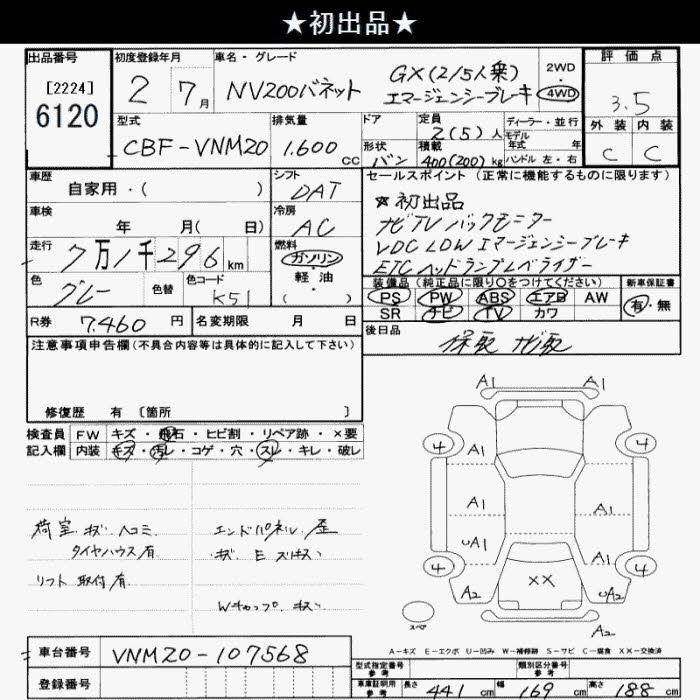 ★初出品★
出品番号
[2224]
6120
初度登録年月
2 7月
車名・グレード
NV200バネット
GX(2/5人乗)
エマージェンシーブレーキ
2WD
・
4WD
評価点
3.5
外装 内装
C C
型式
CBF-VNM20
排気量
1.600 cc
ドア
形状
バン
定員
2(5)人
積載
400(200)kg
ディーラー・並行
モデル
年式 年
ハンドル 左・右
車歴
自家用・( )
シフト
DAT
車検
年 月( 日)
冷房
AC
走行
7万1千296km
燃料
ガソリン
・
軽油
( )
色
グレー
色替
色コード
K51
R券 7.460円
名変期限 月 日
セールスポイント(正常に機能するものに限ります)
★初出品
ナビTV バックモニター
VDC LDW エマージェンシーブレーキ
ETC ヘッドランプレベライザー
装備品(純正品に限り○をつけてください)
PS PW ABS エアB AW
SR ナビ TV カワ
新車保証書
有・無
後日品
保取 ナビ取
注意事項申告欄(不具合内容等は具体的に記入して下さい)
修復歴 有 [箇所 ]
検査員
記入欄
FW キズ・飛石・ヒビ割・リペア跡・×要
内装 キズ・汚レ・コゲ・穴・スレ・キレ・破レ
荷室 キズ ヘコミ
タイヤハウス有
リフト取付有
エンドパネル 歪
キズ E スリキズ
Wキャップ キズ
A1 A1
4 4
A1
A1 A1
uA1 A1
4 4
A2 XX uA2
スペア
A2
A-キズ E-エクボ U-凹み W-補修跡 S-サビ C-腐食 XX-交換済
車台番号
VNM20-107568
登録番号
型式指定番号
参考
類別区分番号
参考
車庫証明用
参考
長さ 441 cm 幅 169 cm 高さ 188 cm